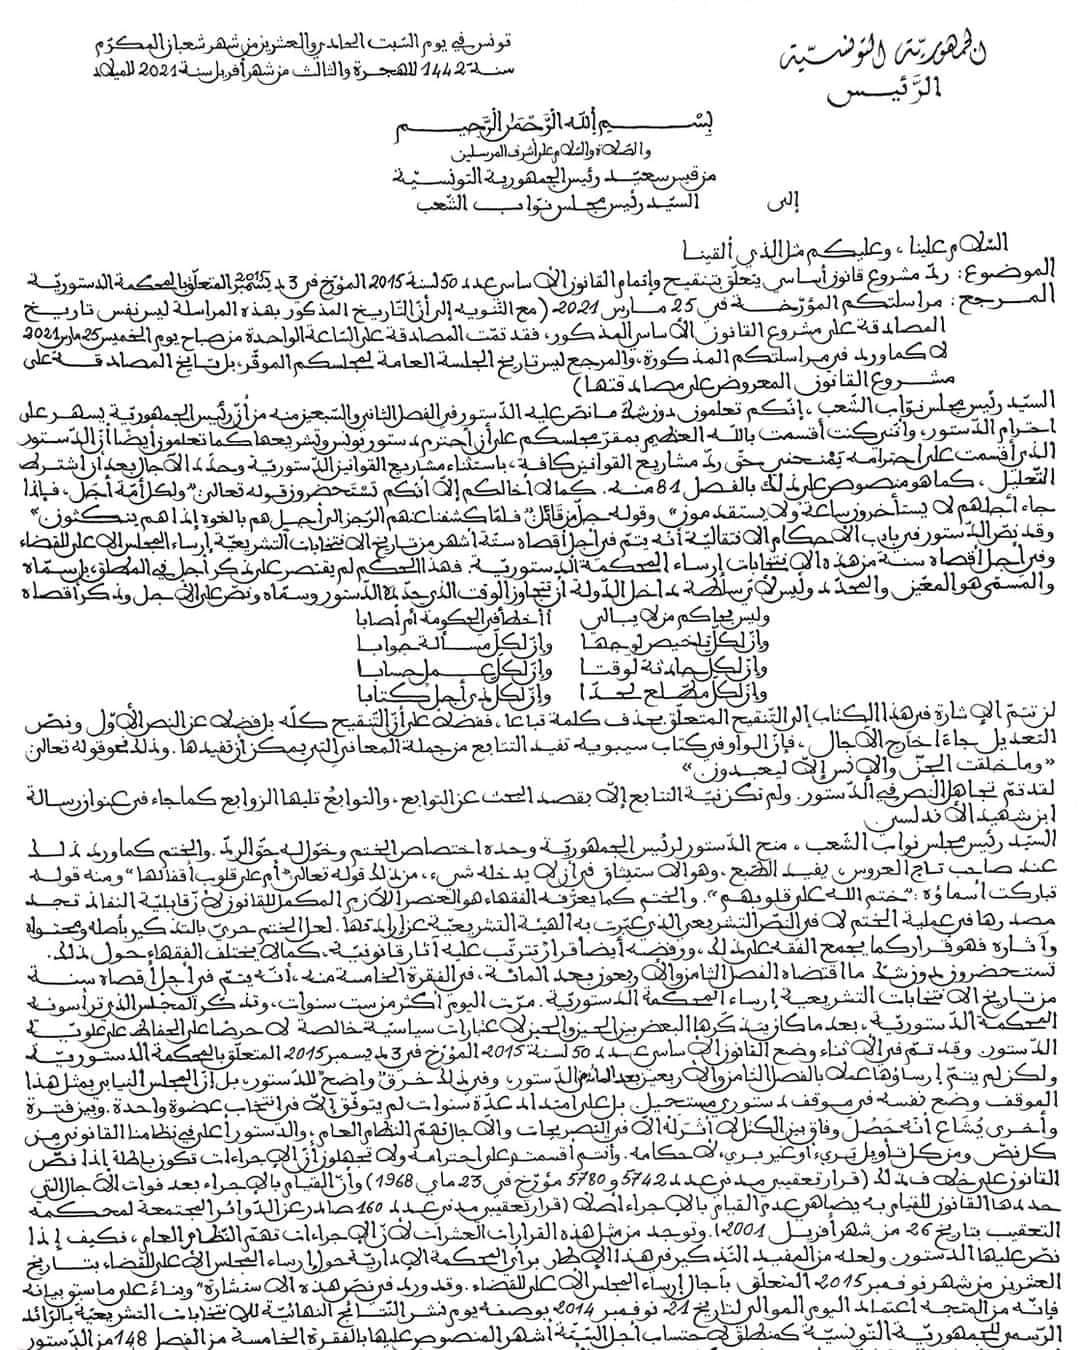 الجمهورية التونسية
الرئيس
تونس في يوم السّبت الحادي والعشرين من شهر شعبان المكرّم
سنة 1442 للهجرة والثالث من شهر أفريل سنة 2021 للميلاد
بِسْمِ اللهِ الرَّحْمَنِ الرَّحِيمِ
والصّلاة والسّلام على أشرف المرسلين
من قيس سعيّد رئيس الجمهورية التونسيّة
إلى السيّد رئيس مجلس نوّاب الشّعب
السّلام علينا، وعليكم مثل الذي ألقينا
الموضوع: ردّ مشروع قانون أساسي يتعلّق بتنقيح وإتمام القانون الأساسي عدد 50 لسنة 2015 المؤرّخ في 3 ديسمبر 2015 المتعلّق بالمحكمة الدستوريّة
المرجع: مراسلتكم المؤرّخة في 25 مارس 2021 (مع التّنويه إلى أنّ التّاريخ المذكور بهذه المراسلة ليس نفس تاريخ
المصادقة على مشروع القانون الأساسي المذكور، فقد تمّت المصادقة على السّاعة الواحدة من صباح يوم الخميس 25 مارس 2021
لا كما ورد في مراسلتكم المذكورة، والمرجع ليس تاريخ الجلسة العامة لمجلسكم الموقّر، بل تاريخ المصادقة على
مشروع القانون المعروض على مصادقتها)
السيّد رئيس مجلس نوّاب الشّعب، إنّكم تعلمون دون شكّ ما نصّ عليه الدّستور في الفصل الثاني والسّبعين منه من أنّ رئيس الجمهوريّة يسهر على
احترام الدّستور، وأنّني كنت أقسمت بالله العظيم بمقرّ مجلسكم على أن أحترم دستور تونس وتشريعها كما تعلمون أيضا أنّ الدّستور
الذي أقسمت على احترامه يمنحني حقّ ردّ مشاريع القوانين كافة، باستثناء مشاريع القوانين الدّستوريّة وحدّد الآجال بعد أن اشترط
التّعليل، كما هو منصوص على ذلك بالفصل 81 منه. كما لا أخالكم إلاّ أنكم تستحضرون قوله تعالى "ولكل أمّة أجل، فإذا
جاء أجلهم لا يستأخرون ساعة ولا يستقدمون" وقوله جلّ من قائل "فلمّا كشفنا عنهم الرّجز إلى أجل هم بالغوه إذا هم ينكثون"
وقد نصّ الدّستور في باب الأحكام الانتقاليّة أنه يتمّ في أجل أقصاه ستّة أشهر من تاريخ الانتخابات التشريعيّة إرساء المجلس الأعلى للقضاء
وفي أجل أقصاه سنة من هذه الانتخابات إرساء المحكمة الدستوريّة. فهذا الحكم لم يقتصر على ذكر أجل في المطلق، بل سمّاه
والمسمّى هو المعيّن والمحدّد وليس لأيّ سلطة داخل الدّولة أن تتجاوز الوقت الذي حدّده الدّستور وسمّاه ونصّ على الأجل وذكر أقصاه
وليس بحاكم من لا يبالي أأخطأ في الحكومة أم أصابا
وإنّ لكلّ تلخيص لوجها وإنّ لكلّ مسألة جوابا
وإنّ لكلّ حادثة لوقتا وإنّ لكلّ عمل حسابا
وإنّ لكلّ مطّلع لحدّا وإنّ لكلّ ذي أجل كتابا
لن تتمّ الإشارة في هذا الكتاب إلى التّنقيح المتعلّق بحذف كلمة تباعا، ففضلا على أنّ التّنقيح كلّه بل فضلا عن النص الأوّل ونصّ
التعديل جاءا خارج الآجال، فإنّ الواو في كتاب سيبويه تفيد التتابع من جملة المعاني التي يمكن أن تفيدها. وذلك نحو قوله تعالى
«وما خلقت الجنّ والإنس إلاّ ليعبدون»
لقد تمّ تجاهل النص في الدّستور. ولم تكن نيّة التتابع إلاّ بقصد البحث عن التوابع، والتوابعُ تليها الزوابع كما جاء في عنوان رسالة
ابن شهيد الأندلسي
السيّد رئيس مجلس نواب الشّعب، منح الدّستور لرئيس الجمهوريّة وحده اختصاص الختم وخوّل له حقّ الردّ. والختم كما ورد ذلك
عند صاحب تاج العروس، يفيد الطّبع، وهو الاستيثاق في أن لا يدخله شيء، من ذلك قوله تعالى "أم على قلوب أقفالها" ومنه قوله
تباركت أسماؤه: "ختم الله على قلوبهم". والختم كما يعرّفه الفقهاء هو العنصر اللازم المكمل للقانون لأنّ قابليّة النفاذ تجد
مصدرها في عملية الختم لا في النّصّ التشريعي الذي عبّرت به الهيئة التشريعيّة عن إرادتها. لعلّ الختم حريّ بالتذكير بأصله ومحتواه
وآثاره فهو قرار كما يجمع الفقه على ذلك، ورفضه أيضا قرار تترتّب عليه آثار قانونيّة. كما لا يختلف الفقهاء حول ذلك.
تستحضرون دون شك ما اقتضاه الفصل الثامن والأربعون بعد المائة، في الفقرة الخامسة منه، أنّه يتمّ في أجل أقصاه سنة
من تاريخ الانتخابات التشريعية إرساء المحكمة الدستوريّة. مرّت اليوم أكثر من ستّ سنوات، وتذكّر المجلس الذي ترأسونه
المحكمة الدّستوريّة، بعد ما كان يتذكّرها البعض بين الحين والحين لاعتبارات سياسيّة خالصة لا حرصا على الحفاظ على علويّة
الدّستور. وقد تمّ في الأثناء وضع القانون الأساسي عدد 50 لسنة 2015 المؤرّخ في 3 ديسمبر 2015 المتعلّق بالمحكمة الدستوريّة
ولكن لم يتمّ إرساؤها عملا بالفصل الثامن والأربعين بعد المائة من الدّستور، وفي ذلك خرق واضح للدّستور، بل إنّ المجلس النيابي بمثل هذا
الموقف وضع نفسه في موقف دستوري مستحيل بل على امتداد عدّة سنوات لم يتوفّق إلاّ في انتخاب عضوة واحدة. وبين فترة
وأخرى يُشَاع أنّه حَصَل وفاق بين الكتل لا أثر له إلا في التصريحات والآجال تهمّ النظام العام، والدستور أعلى في نظامنا القانوني من
كل نصّ ومن كل تأويل بريء أو غير بريء، لأحكامه. وأنتم أقسمتم على احترامه ولا تجهلون أنّ الإجراءات تكون باطلة إذا نصّ
القانون على خلاف ذلك (قرار تعقيبي مدني عدد 5742 و5780 مؤرّخ في 23 ماي 1968) وأنّ القيام بالإجراء بعد فوات الآجال التي
حددها القانون للقيام به يضاهي عدم القيام بالإجراء أصلا (قرار تعقيبي مدني عدد 160 صادر عن الدّوائر المجتمعة لمحكمة
التعقيب بتاريخ 26 من شهر أفريل 2001). وتوجد من مثل هذه القرارات العشرات لأنّ الإجراءات تهمّ النّظام العام، فكيف إذا
نصّ عليها الدستور. ولعله من المفيد التّذكير في هذا الإطار برأي المحكمة الإداريّة حول إرساء المجلس الأعلى للقضاء بتاريخ
العشرين من شهر نوفمبر 2015 المتعلّق بآجال إرساء المجلس الأعلى للقضاء. وقد ورد في نصّ هذه الاستشارة "وبناءً على ما سبق بيانه
فإنّه من المتّجه اعتماد اليوم الموالي لتاريخ 21 نوفمبر 2014 بوصفه يوم نشر النّتائج النهائيّة للانتخابات التشريعيّة بالرّائد
الرّسمي للجمهوريّة التّونسيّة كمنطلق لاحتساب أجل السّتّة أشهر المنصوص عليها بالفقرة الخامسة من الفصل 148 من الدّستور